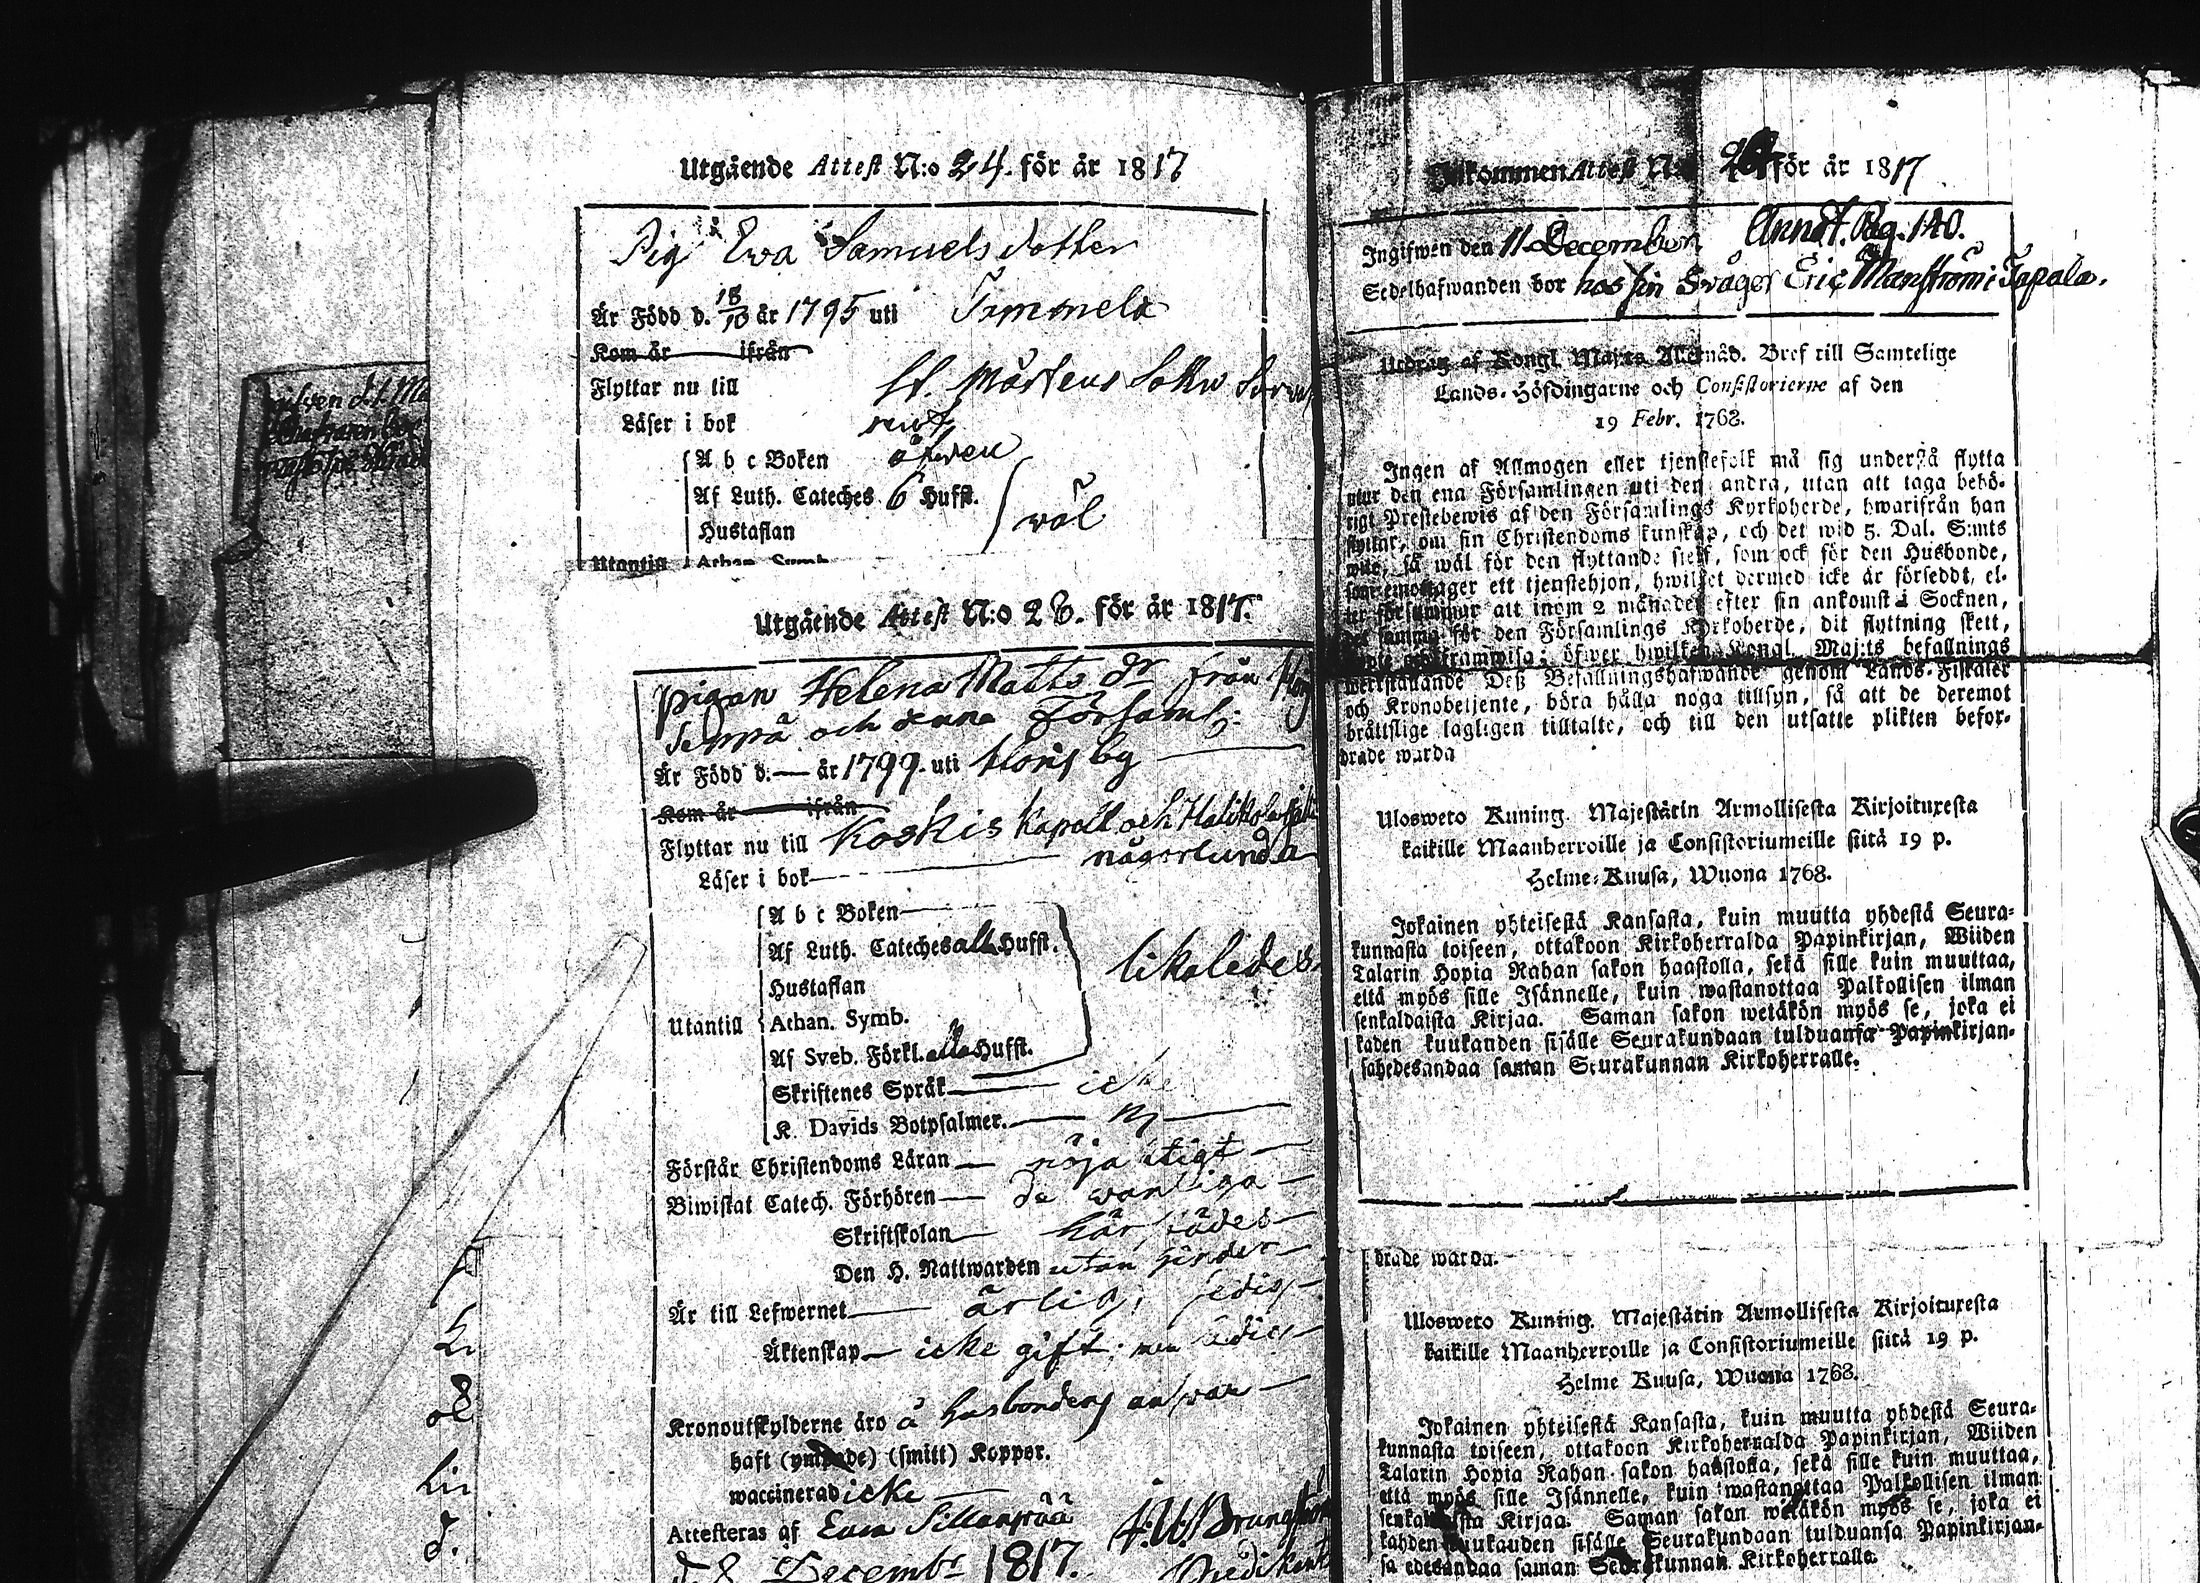 Utgående Attest N:o 24. för år 1817
Pig Ewa Samuelsdotter
Är Född d. 18/10 år 1795 uti
Kom år ifrån
Flyttar nu till St. Mårtens
Läser i bok
A b c Boken äfwen
Af Luth. Cateches 6 Hufst.
wäl
Hustaflan
Utantill Athan. Symb.
Utgående Attest N:o 26. för år 1817.
Pigan Helena Matts dr från
och denna Församl:
Är Född d. — år 1799. uti
Kom år ifrån
Flyttar nu till Koskis Kapell och
någorlunda
Läser i bok
A b c Boken
Af Luth. Cateches alla Hufst.
likaledes
Hustaflan
Utantill Athan. Symb.
Af Sveb. Förkl. alla Hufst.
Skriftenes Språk icke
K. Davids Botpsalmer.
Förstår Christendoms Läran nöjaktigt
Biwistat Catech. Förhören de wanliga
Skriftskolan härstädes
Den H. Nattwarden utan hinder
Är till Lefwernet ärlig,
Äktenskap icke gift; men ledig
Kronoutskylderne äro å husbondens answar
haft (ympade) (smitt) Koppor.
waccinerad icke
Attesteras af
d. 8 Decembr 1817.
Inkommen Attest N:o för år 1817
Ingifwen den 11 December Annot. Pag. 140.
Sedelhafwanden bor hos sin Swåger Eric
Utdrag af Kongl. Maj:ts Allernåd. Bref till Samtelige
Lands-Höfdingarne och Consistorierne af den
19 Febr. 1768.
Ingen af Allmogen eller tjenstefolk må sig understå flytta
utur den ena Församlingen uti den andra, utan att taga behö-
rigt Prestebewis af den Församlings Kyrkoherde, hwarifrån han
flyttar, om sin Christendoms kunskap, och det wid 5. Dal. S:mts
wite, så wäl för den flyttande sielf, som ock för den Husbonde,
som emottager ett tjenstehjon, hwilket dermed icke är försedt, el-
ler försummar att inom 2 månader efter sin ankomst i Socknen,
det samma för den Församlings Kyrkoherde, dit flyttning skett,
framwisa; öfwer hwilken Kongl. Maj:ts befallnings
werkställande Deß Befallningshafwande genom Lands-Fiskaler
och Kronobetjente, böra hålla noga tillsyn, så att de deremot
bråttslige lagligen tilltalte, och till den utsatte plikten befor-
drade warda
Ulosweto Kuning. Majestätin Armollisesta Kirjoituxesta
kaikille Maanherroille ja Consistoriumeille siitä 19 p.
Helme-Kuusa, Wuona 1768.
Jokainen yhteisestä Kansasta, kuin muutta yhdestä Seura-
kunnasta toiseen, ottakoon Kirkoherralda Papinkirjan, Wiiden
Talarin Hopia Rahan sakon haastolla, sekä sille kuin muuttaa,
että myös sille Isännelle, kuin wastanottaa Palkollisen ilman
senkaldaista Kirjaa. Saman sakon wetäkön myös se, joka ei
kahden kuukauden sisälle Seurakundaan tulduansa Papinkirjan-
sa edesandaa saman Seurakunnan Kirkoherralle.
drade warda.
Ulosweto Kuning. Majestätin Armollisesta Kirjoituxesta
kaikille Maanherroille ja Consistoriumeille siitä 19 p.
Helme Kuusa, Wuona 1768.
Jokainen yhteisestä Kansasta, kuin muutta yhdestä Seura-
kunnasta toiseen, ottakoon Kirkoherralda Papinkirjan, Wiiden
Talarin Hopia Rahan sakon haastolla, sekä sille kuin muuttaa,
että myös sille Isännelle, kuin wastanottaa Palkollisen ilman
Kirjaa. Saman sakon wetäkön myös se, joka ei
kahden kuukauden sisälle Seurakundaan tulduansa Papinkirjan-
sa edesandaa saman Seurakunnan Kirkoherralle.